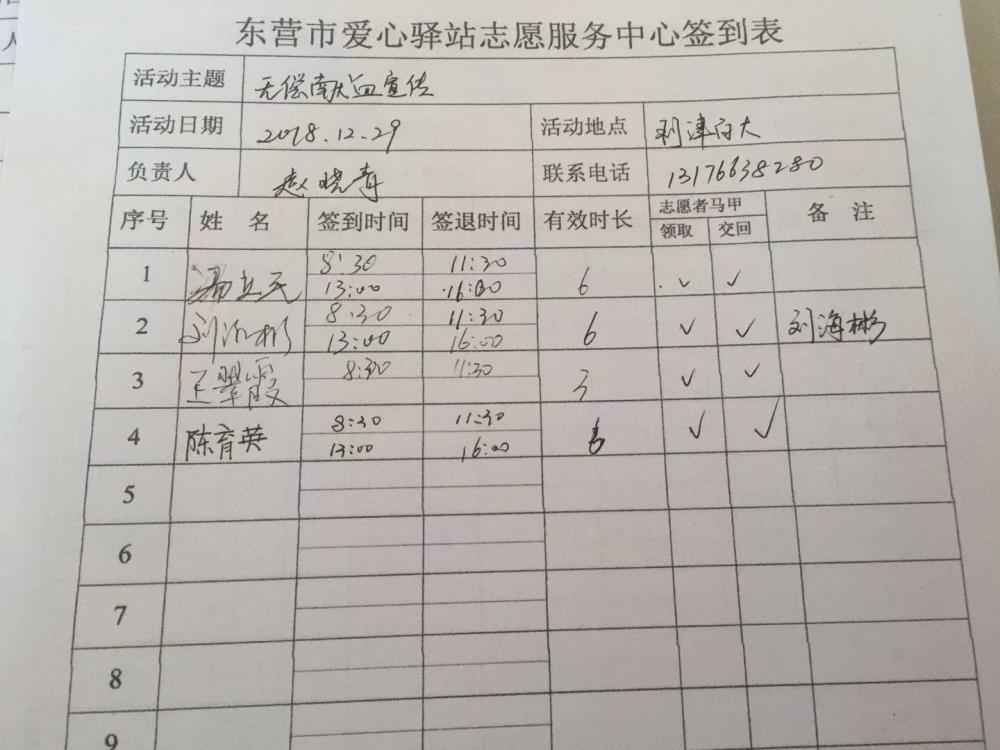 东营市爱心驿站志愿服务中心签到表
活动主题 无偿献血宣传
活动日期 2018.12.29 活动地点 利津百大
负责人 赵晓青 联系电话 13176638280
序号 姓 名 签到时间 签退时间 有效时长 志愿者马甲 备 注
领取 交回
1 8:30 11:30
13:00 16:00 6 ✓ ✓
2 刘海彬 8:30 11:30
13:00 16:00 6 ✓ ✓ 刘海彬
3 王翠霞 8:30 11:30 3 ✓ ✓
4 陈育英 8:30 11:30
13:00 16:00 6 ✓ ✓
5
6
7
8
9